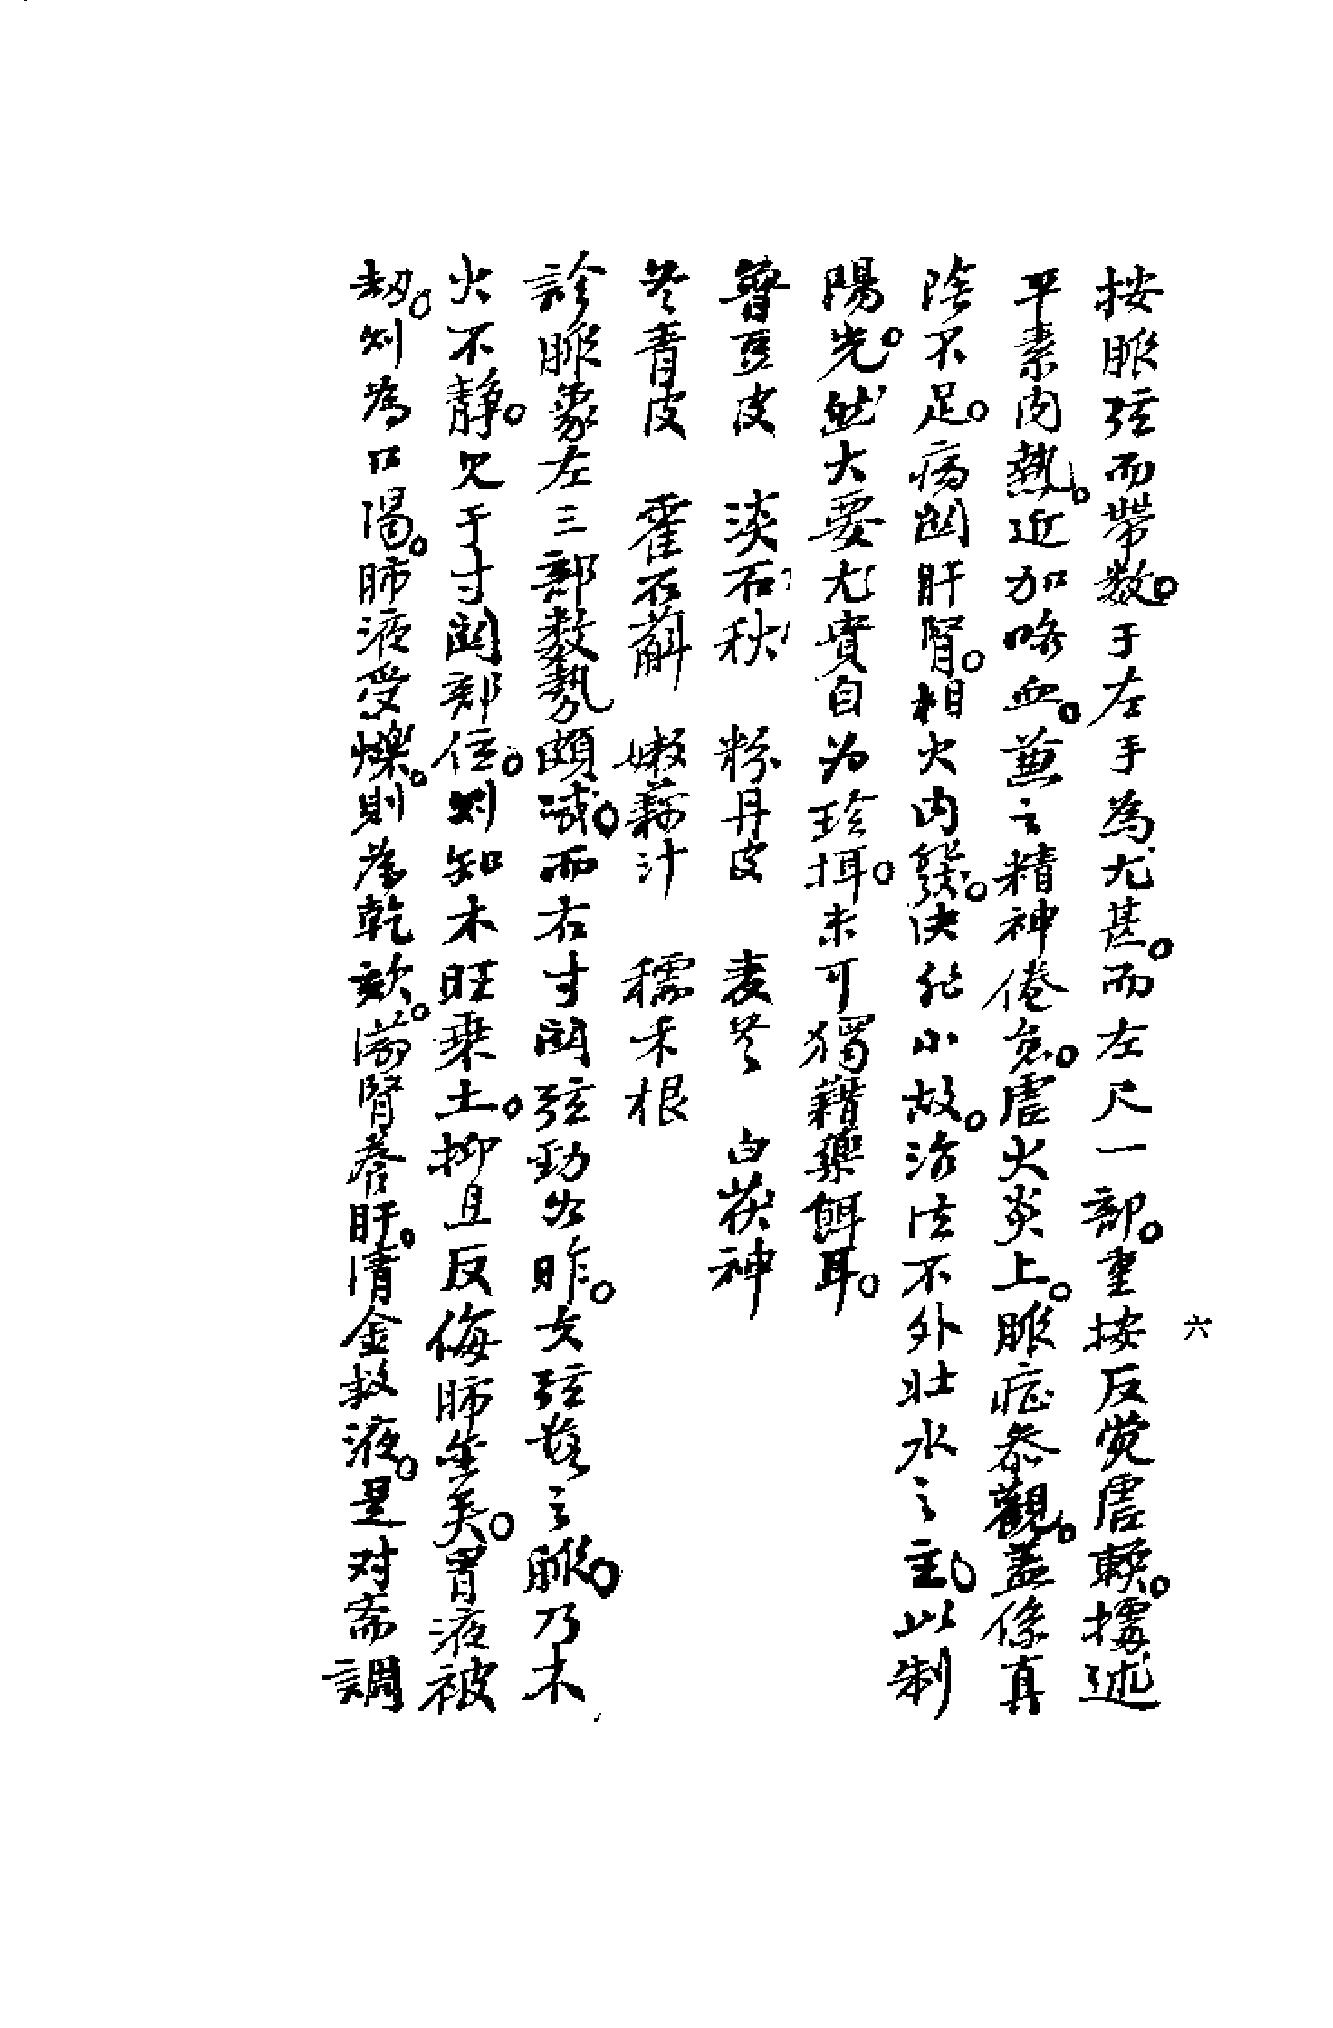 按脈弦而帶数。于左手為尤甚。而左尺一部。重按反覺虛軟。據述
平素內熱。近加咯血。兼之精神倦怠。虛火炎上。脈症叅觀。蓋係真
陰不足。病関肝腎。相火內發。决非小故。治法不外壯水之主。以制
陽光。然大要尤貴自为珍掙。未可獨藉藥餌耳。
穞豆皮　淡石秋　粉丹皮　麦冬　白茯神
冬青皮　霍石斛　嫩藕汁　糯米根
診脈象左三部数勢頗減。而右寸関弦勁如昨。夫弦数之脈。乃木
火不静。見于寸関部位。則知木旺乘土。抑且反侮肺金矣。胃液被
刼。則為口渴。肺液受爍。則為乾欬。滋腎養肝。清金救液。是对症調
六